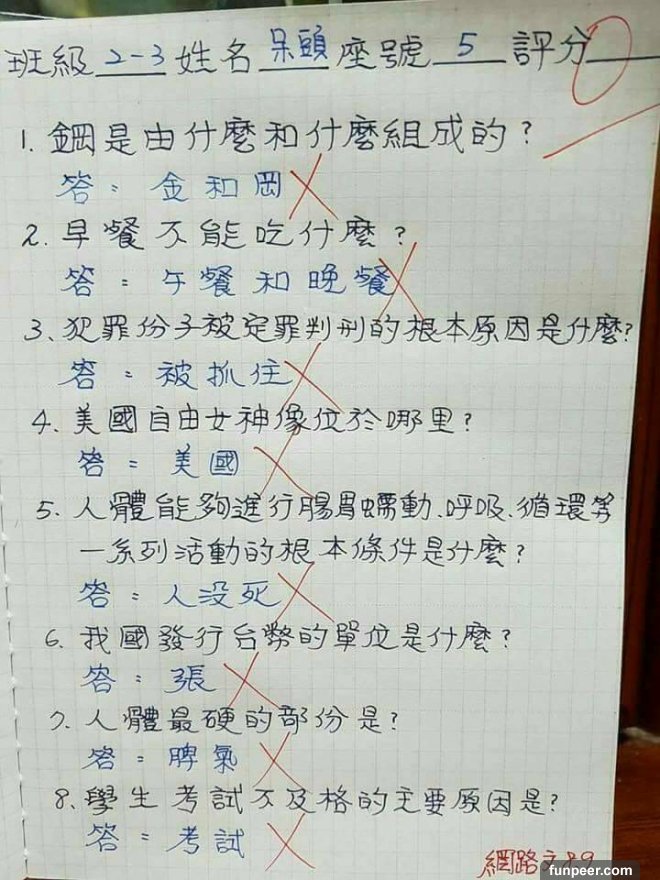 班級 2-3 姓名 呆頭 座號 5 評分 0
1. 鋼是由什麼和什麼組成的?
答: 金和岡
2. 早餐不能吃什麼?
答: 午餐和晚餐
3、犯罪份子被定罪判刑的根本原因是什麼?
答: 被抓住
4、美國自由女神像位於哪里?
答: 美國
5、人體能夠進行腸胃蠕動、呼吸、循環等
一系列活動的根本條件是什麼?
答: 人沒死
6、我國發行台幣的單位是什麼?
答: 張
7、人體最硬的部份是?
答: 脾氣
8、學生考試不及格的主要原因是?
答: 考試
網路文
funpeer.com